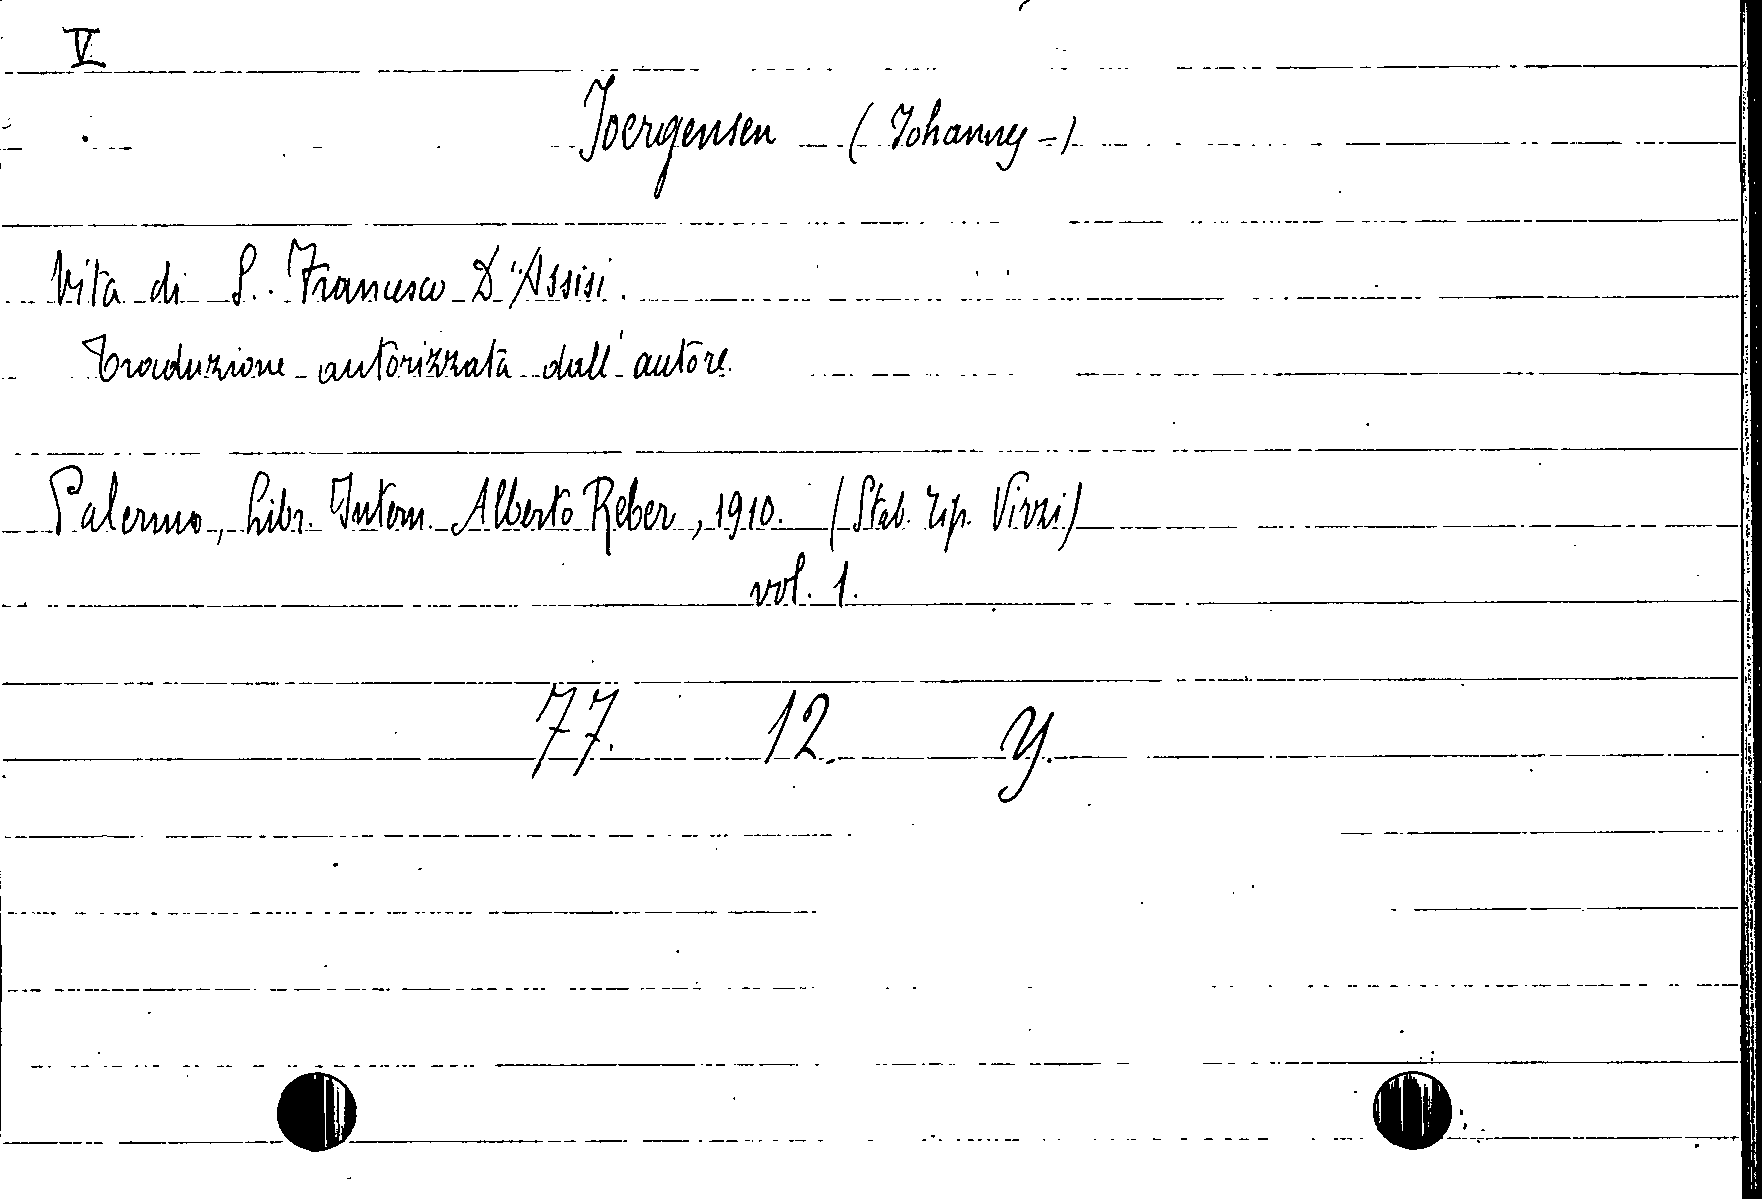 V
Joergensen (Johannes -)
Vita di S. Francesco D'Assisi.
Traduzione autorizzata dall'autore.
Palermo, Libr. Intern. Alberto Reber, 1910. (Stab. Tip. Virzi)
vol. 1.
77. 12. Y.